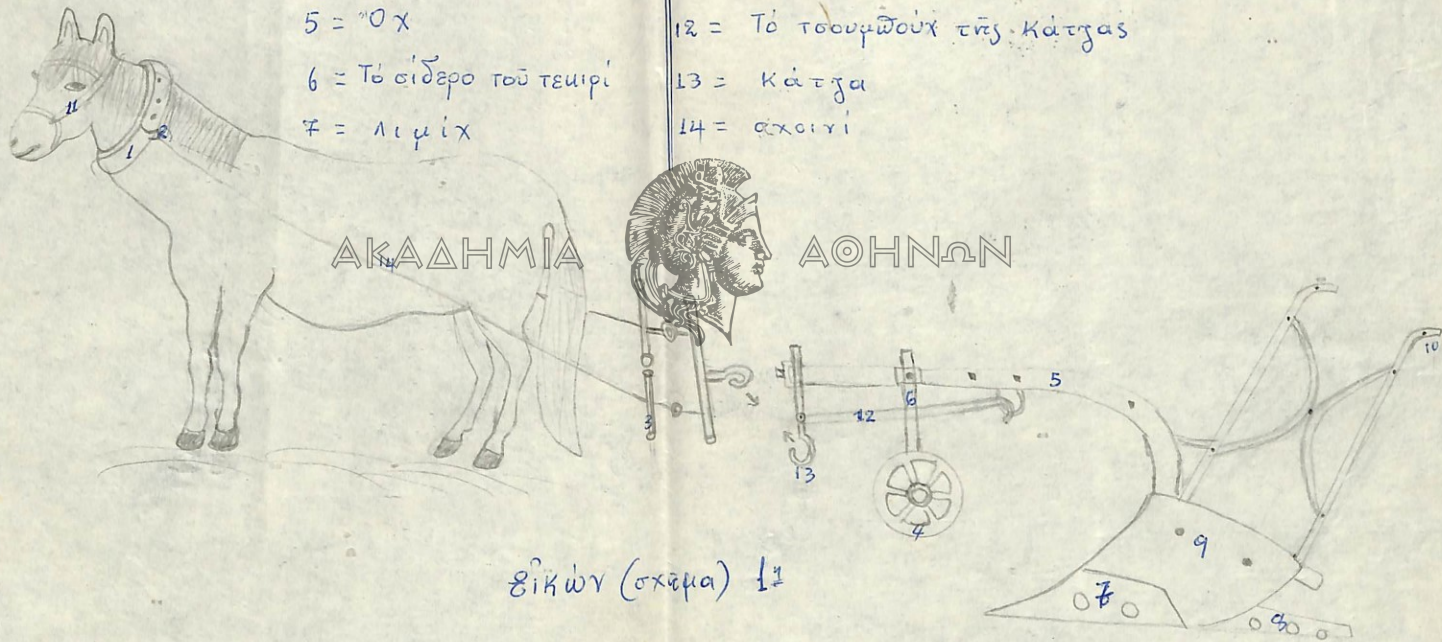 5 = Ὄχ
6 = Τό σίδερο τοῦ τεκιρί
7 = Λιμίχ
12 = Τό τσουμποῦχ τῆς κάτζας
13 = κάτζα
14 = σχοινί
11
2
1
ΑΚΑΔΗΜΙΑ ΑΘΗΝΩΝ
14
10
5
6
12
3
13
4
9
εἰκών (σχῆμα) 11
7
8